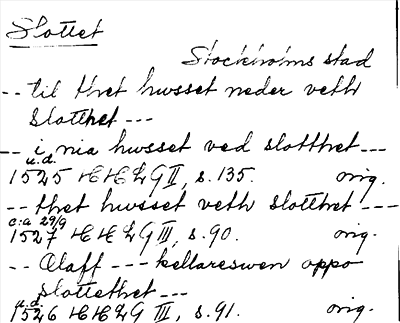 Slottet
Stockholms stad
-- til thet hwsset neder veth
slotthet ---
-- i nia hwsset ved slotthet ---
u.d.
1525 HH LG II, s. 135. orig.
-- thet hwsset veth slotthet ---
c:a 29/9
1527 HH LG III, s. 90. orig.
-- Olaff --- kellareswen oppo
slottethet ---
u.d.
1526 HH LG III, s. 91. orig.